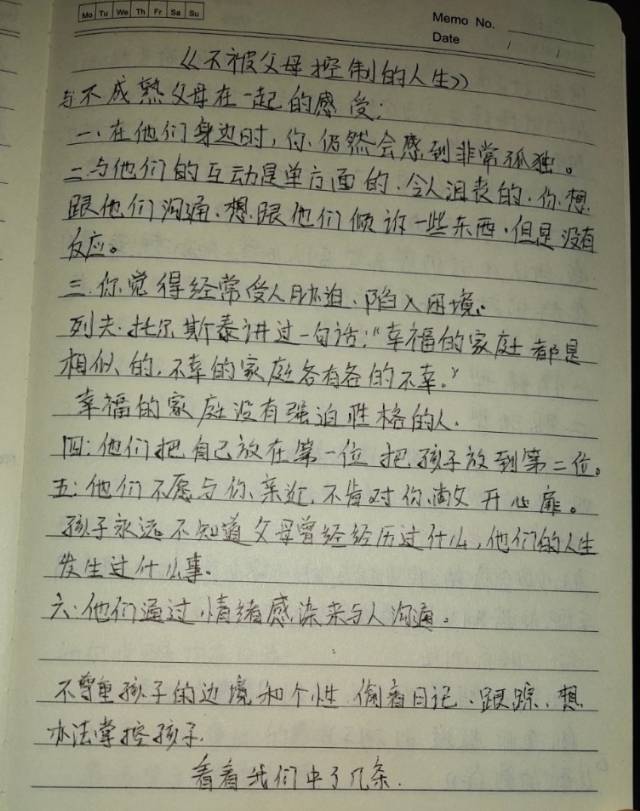 Mo Tu We Th Fr Sa Su
Memo No.
Date / /
《不被父母控制的人生》
与不成熟父母在一起的感受:
一、在他们身边时,你仍然会感到非常孤独。
二、与他们的互动是单方面的、令人沮丧的、你想
跟他们沟通、想跟他们倾诉一些东西,但是没有
反应。
三、你觉得经常受人胁迫、陷入困境.
列夫·托尔斯泰讲过一句话:"幸福的家庭都是
相似的,不幸的家庭各有各的不幸。"
幸福的家庭没有强迫性格的人.
四:他们把自己放在第一位 把孩子放到第二位。
五:他们不愿与你亲近,不肯对你敞开心扉。
孩子永远不知道父母曾经经历过什么,他们的人生
发生过什么事.
六:他们通过情绪感染来与人沟通。
不尊重孩子的边境和个性 偷看日记、跟踪、想
办法掌控孩子.
看看我们中了几条.